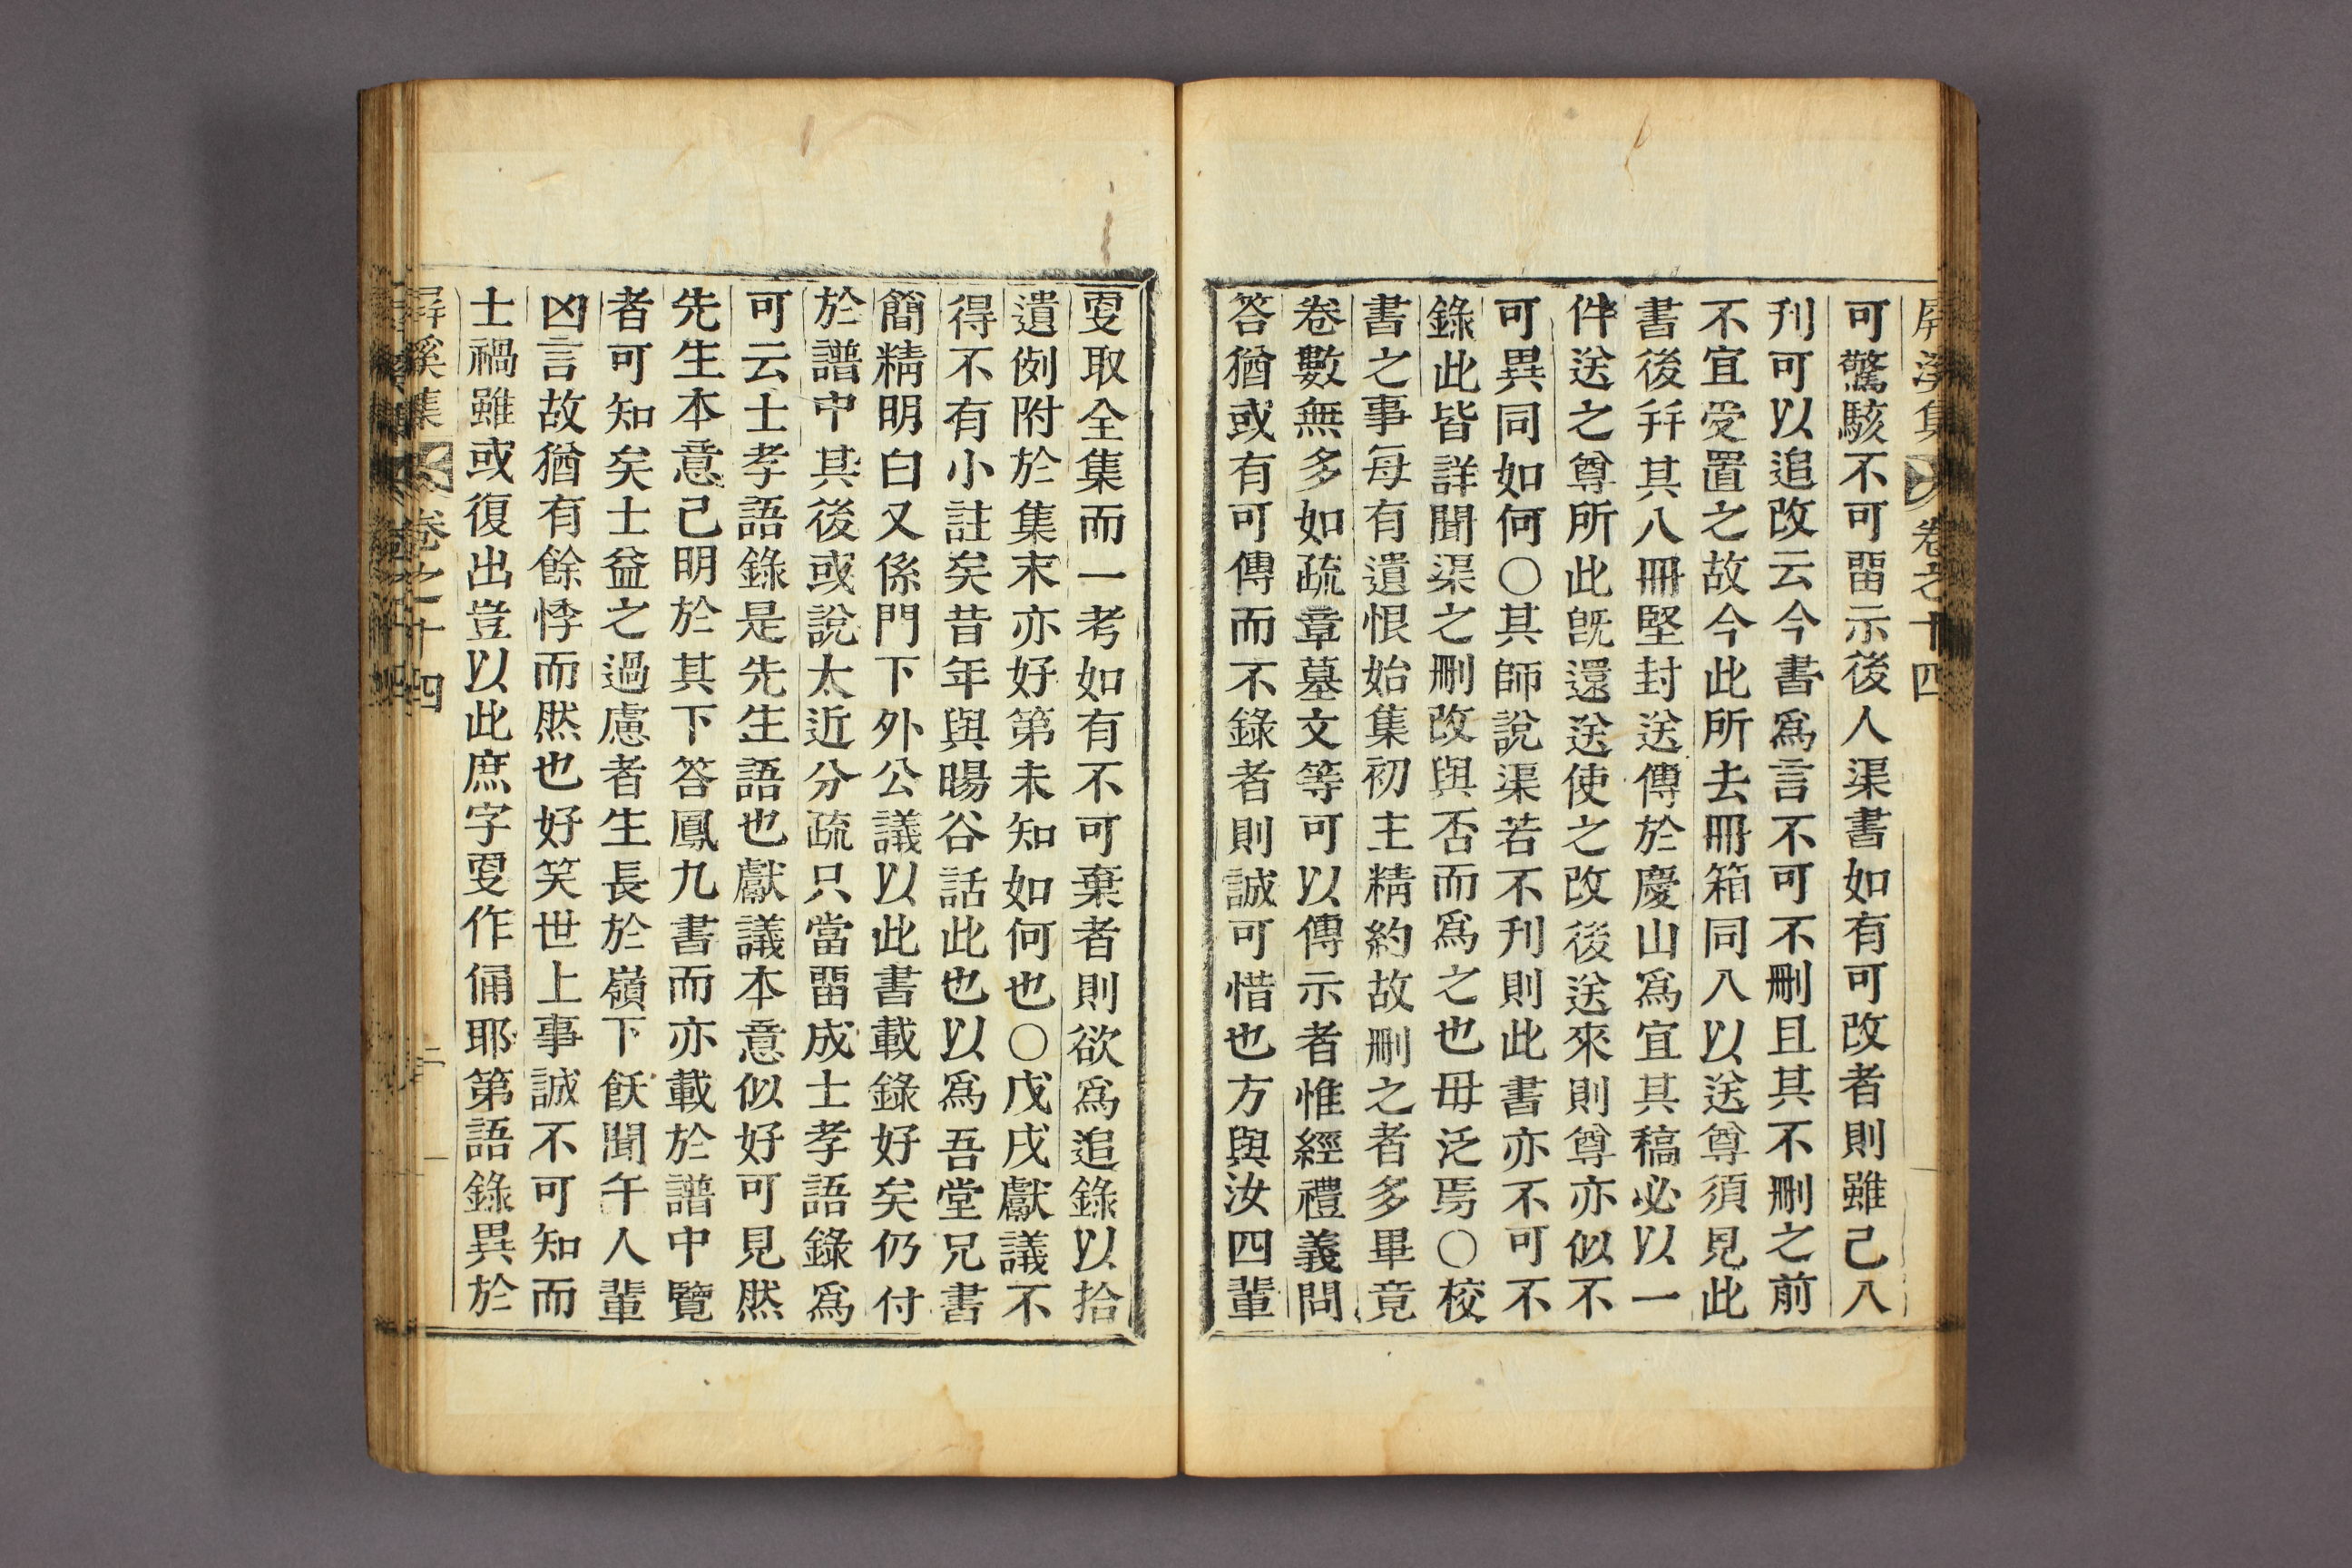 屏溪集 卷之十四
可驚駭不可畱示後人渠書如有可改者則雖己入
刊可以追改云今書爲言不可不刪且其不刪之前
不宜受置之故今此所去冊箱同入以送尊須見此
書後幷其八冊堅封送傳於慶山爲宜其稿必以一
件送之尊所此旣還送使之改後送來則尊亦似不
可異同如何○其師說渠若不刊則此書亦不可不
錄此皆詳聞渠之刪改與否而爲之也毋泛焉○校
書之事每有遺恨始集初主精約故刪之者多畢竟
卷數無多如疏章墓文等可以傳示者惟經禮義問
答猶或有可傳而不錄者則誠可惜也方與汝四輩
更取全集而一考如有不可棄者則欲爲追錄以拾
遺例附於集末亦好第未知如何也○戊戌獻議不
得不有小註矣昔年與暘谷話此也以爲吾堂兄書
簡精明白又係門下外公議以此書載錄好矣仍付
於譜中其後或說太近分疏只當畱成士孝語錄爲
可云士孝語錄是先生語也獻議本意似好可見然
先生本意己明於其下答鳳九書而亦載於譜中覽
者可知矣士益之過慮者生長於嶺下飫聞午人輩
凶言故猶有餘悸而然也好笑世上事誠不可知而
士禍雖或復出豈以此庶字更作俑耶第語錄異於
屛溪集 卷之十四 二